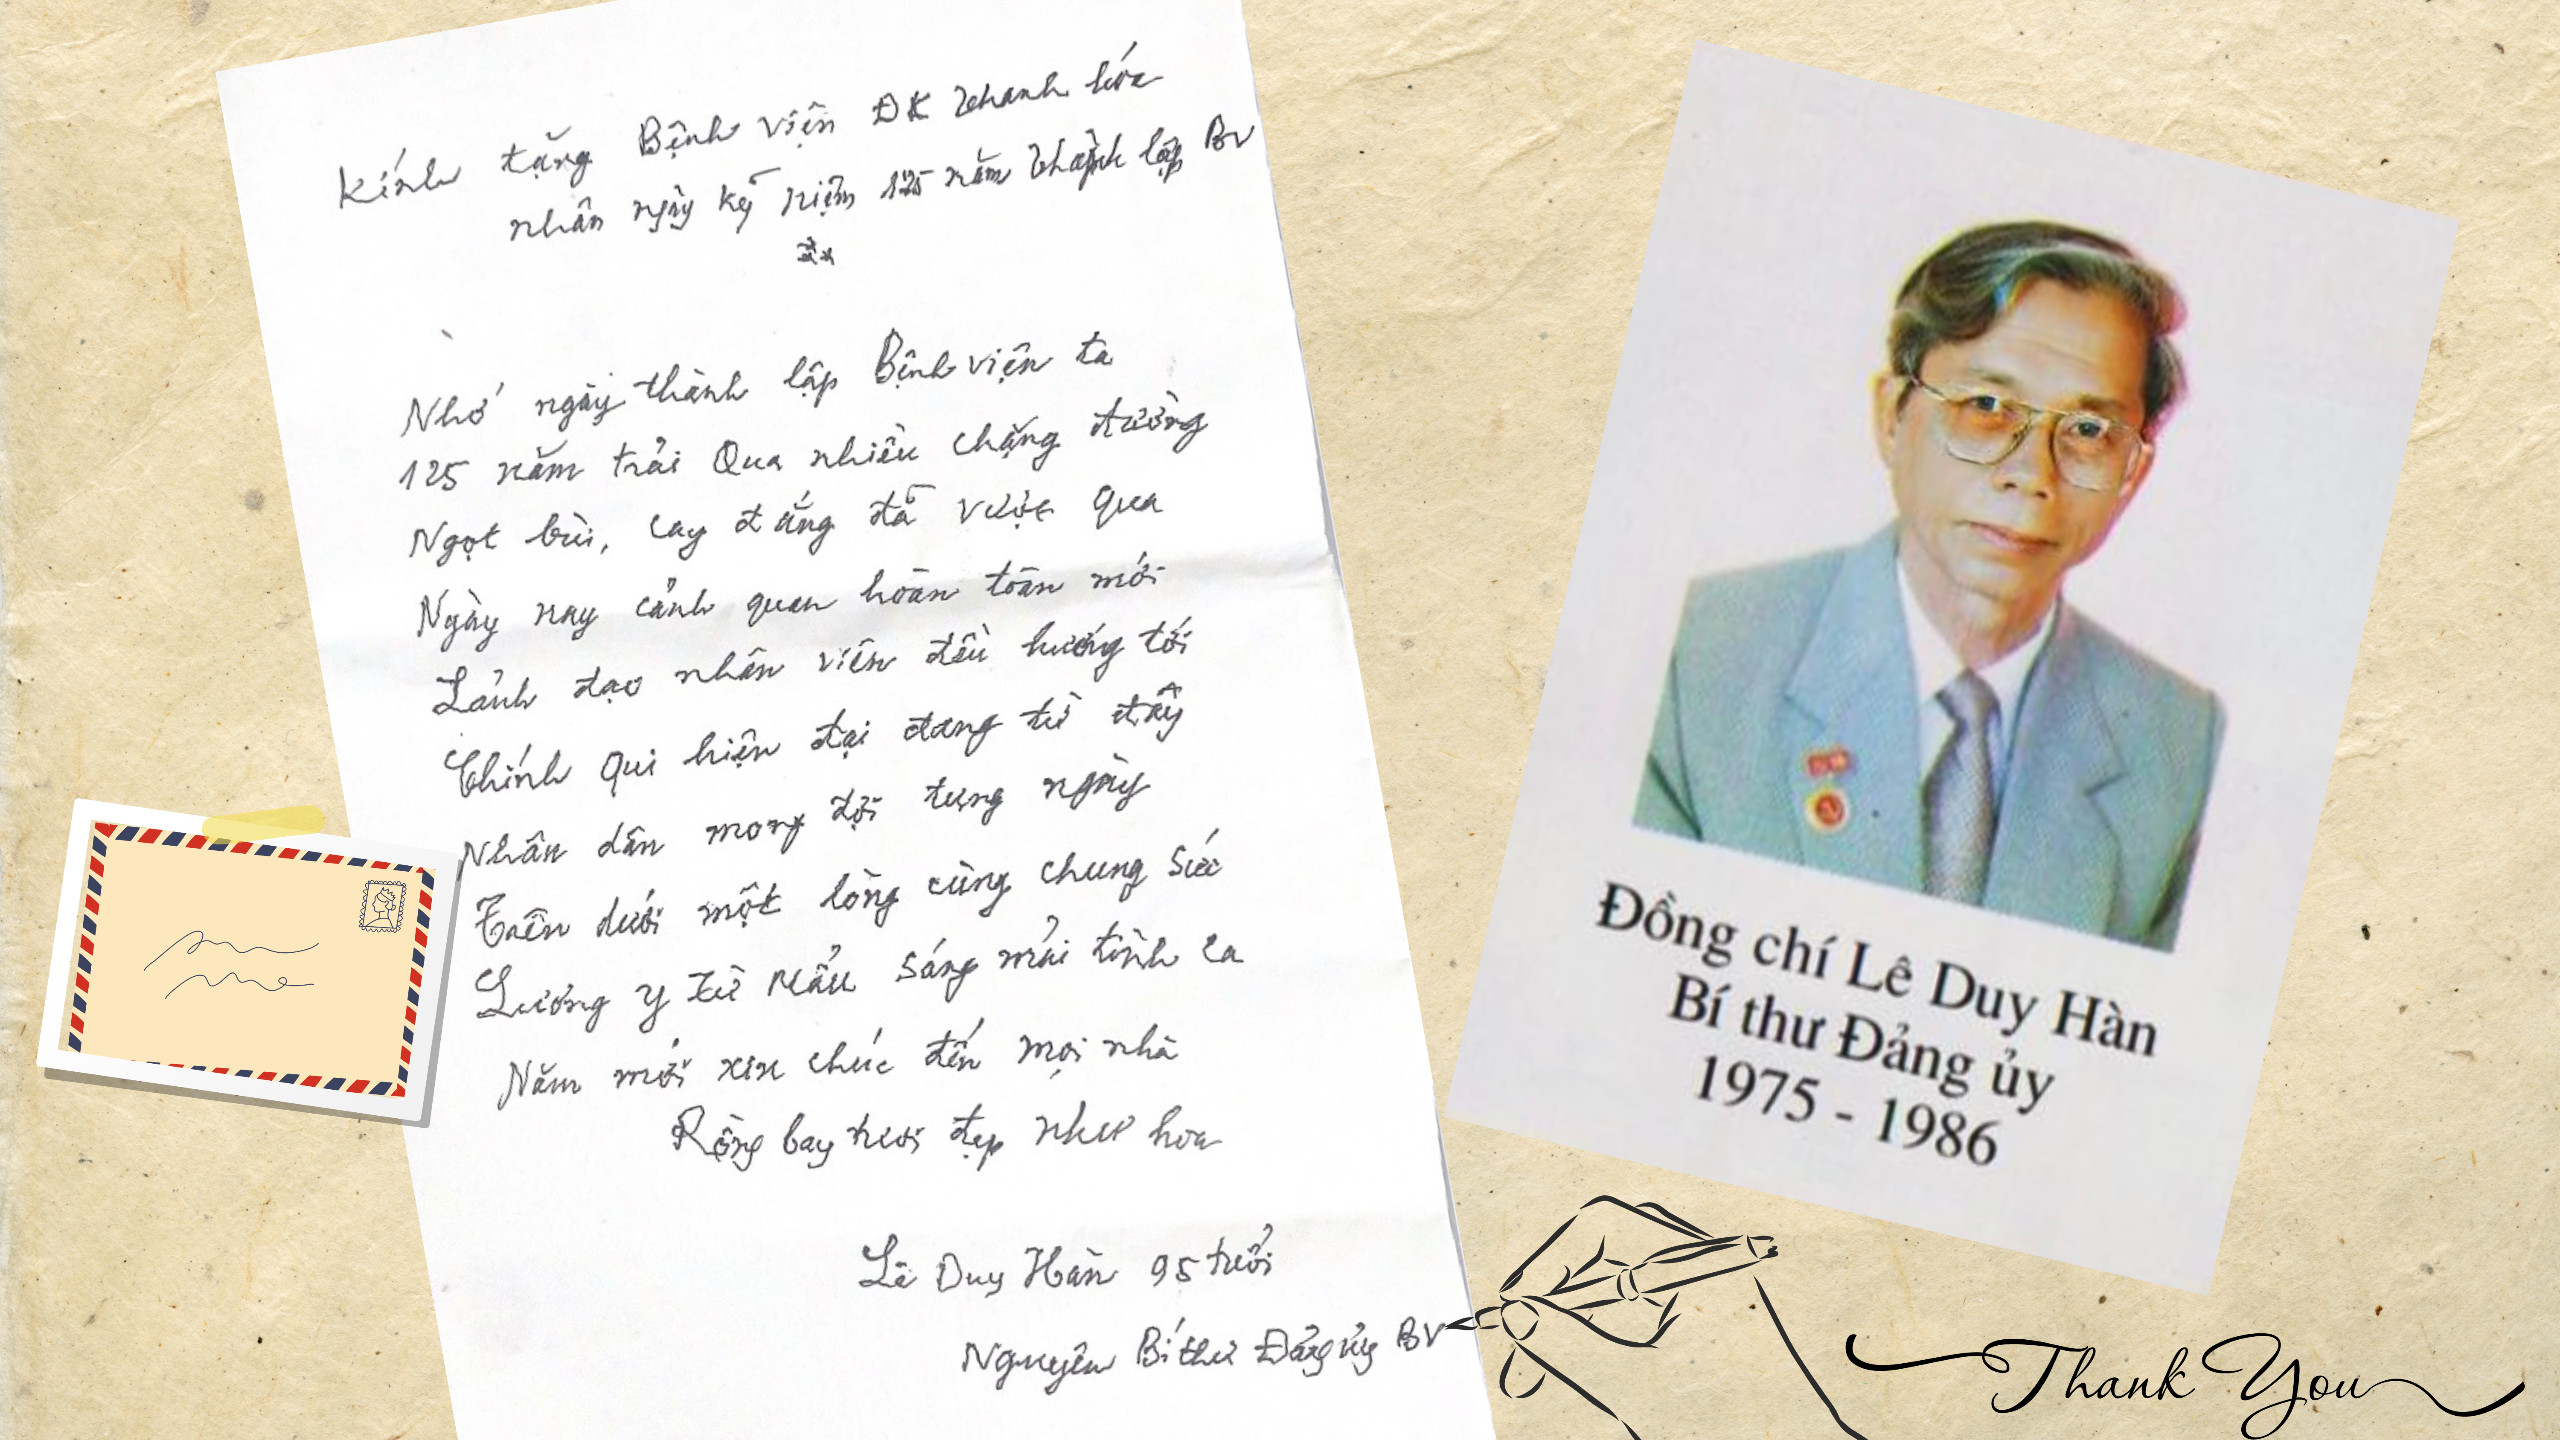 Kính tặng Bệnh viện ĐK Thanh hóa
nhân ngày kỷ niệm 125 năm thành lập BV
Nhớ ngày thành lập Bệnh viện ta
125 năm trải Qua nhiều chặng đường
Ngọt bùi, cay đắng đã vượt qua
Ngày nay cảnh quan hoàn toàn mới
Lảnh đạo nhân viên đều hướng tới
Chính qui hiện đại đang từ đấy
Nhân dân mong đợi từng ngày
Trên dưới một lòng cùng chung sức
Lương y từ Mẩu sáng mải tình ca
Năm mới xin chúc đến mọi nhà
Rồng bay tươi đẹp như hoa
Lê Duy Hàn 95 tuổi
Nguyên Bí thư Đảng ủy BV
Đồng chí Lê Duy Hàn
Bí thư Đảng ủy
1975 - 1986
Thank You